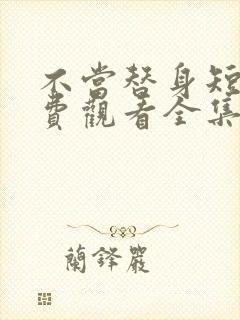 不當替身短
費觀看全集
蘭鐸嚴